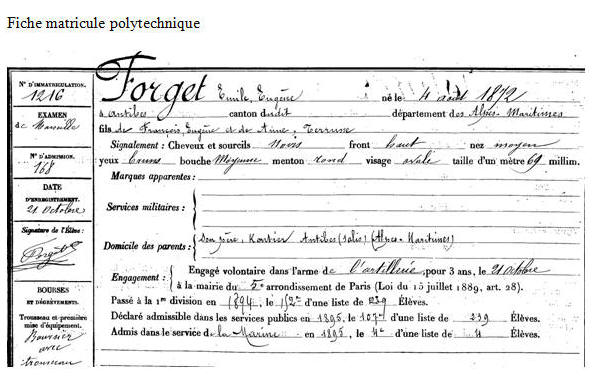 Fiche matricule polytechnique
N° D'IMMATRICULATION.
1216
EXAMEN
de Marseille
N° D'ADMISSION.
168
DATE
D'ENREGISTREMENT.
21 Octobre
Signature de l'Élève :
Forget
BOURSES
ET DÉGRÈVEMENTS.
Trousseau et première
mise d'équipement.
Boursier
avec
trousseau
Forget Emile, Eugène né le 4 août 1872
à Antibes canton dudit département des Alpes-Maritimes
fils de François, Eugène et de Anne, Terrusse
Signalement : Cheveux et sourcils Noirs front haut nez moyen
yeux bruns bouche Moyenne menton rond visage ovale taille d'un mètre 69 millim.
Marques apparentes :
Services militaires :
Domicile des parents : Son père, Antibes (Alpes-Maritimes)
Engagement : Engagé volontaire dans l'arme de l'artillerie, pour 3 ans, le 21 Octobre
à la mairie du 5e arrondissement de Paris (Loi du 15 juillet 1889, art. 28).
Passé à la 1re division en 1894, le d'une liste de 239 Élèves.
Déclaré admissible dans les services publics en 1895, le 107e d'une liste de 239 Élèves.
Admis dans le service de la Marine en 1895, le 4e d'une liste de 4 Élèves.